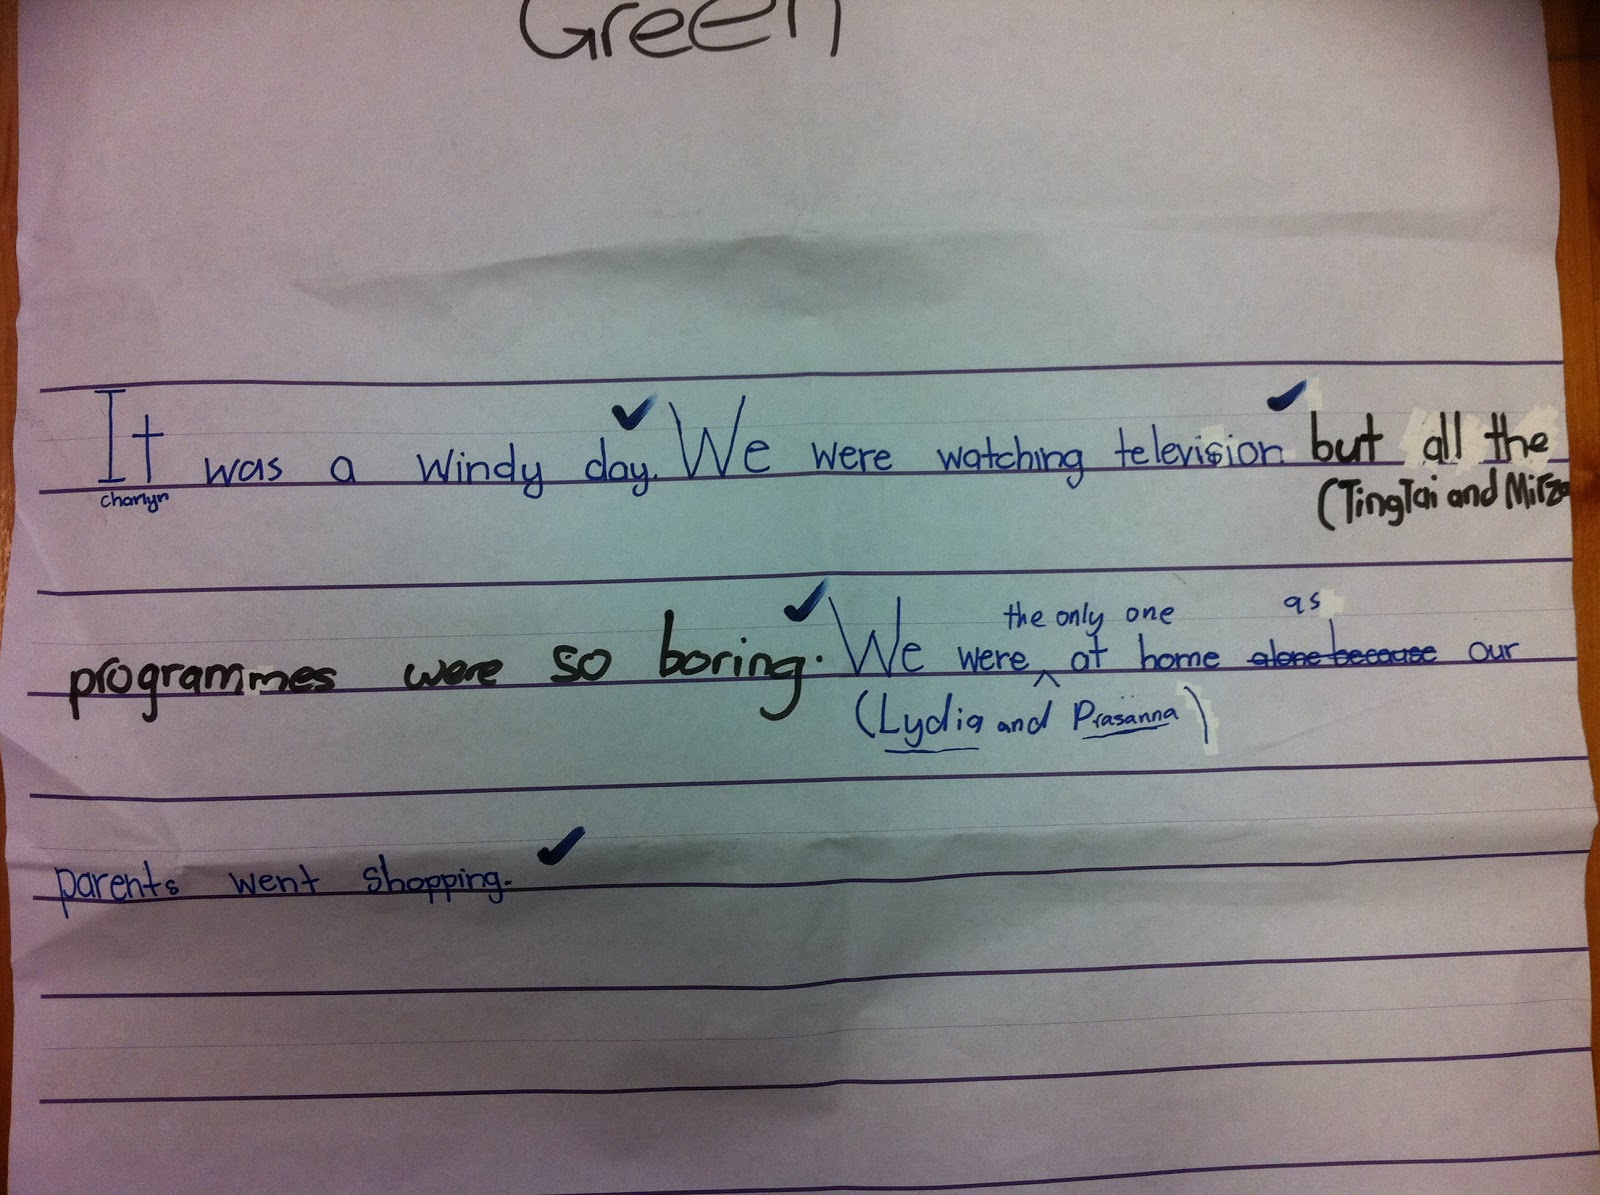 Green
It was a windy day. We were watching television but all the
charlyn (TingTai and Mirza
the only one as
programmes were so boring. We were ^ at home alone because our
(Lydia and Prasanna)
parents went shopping.